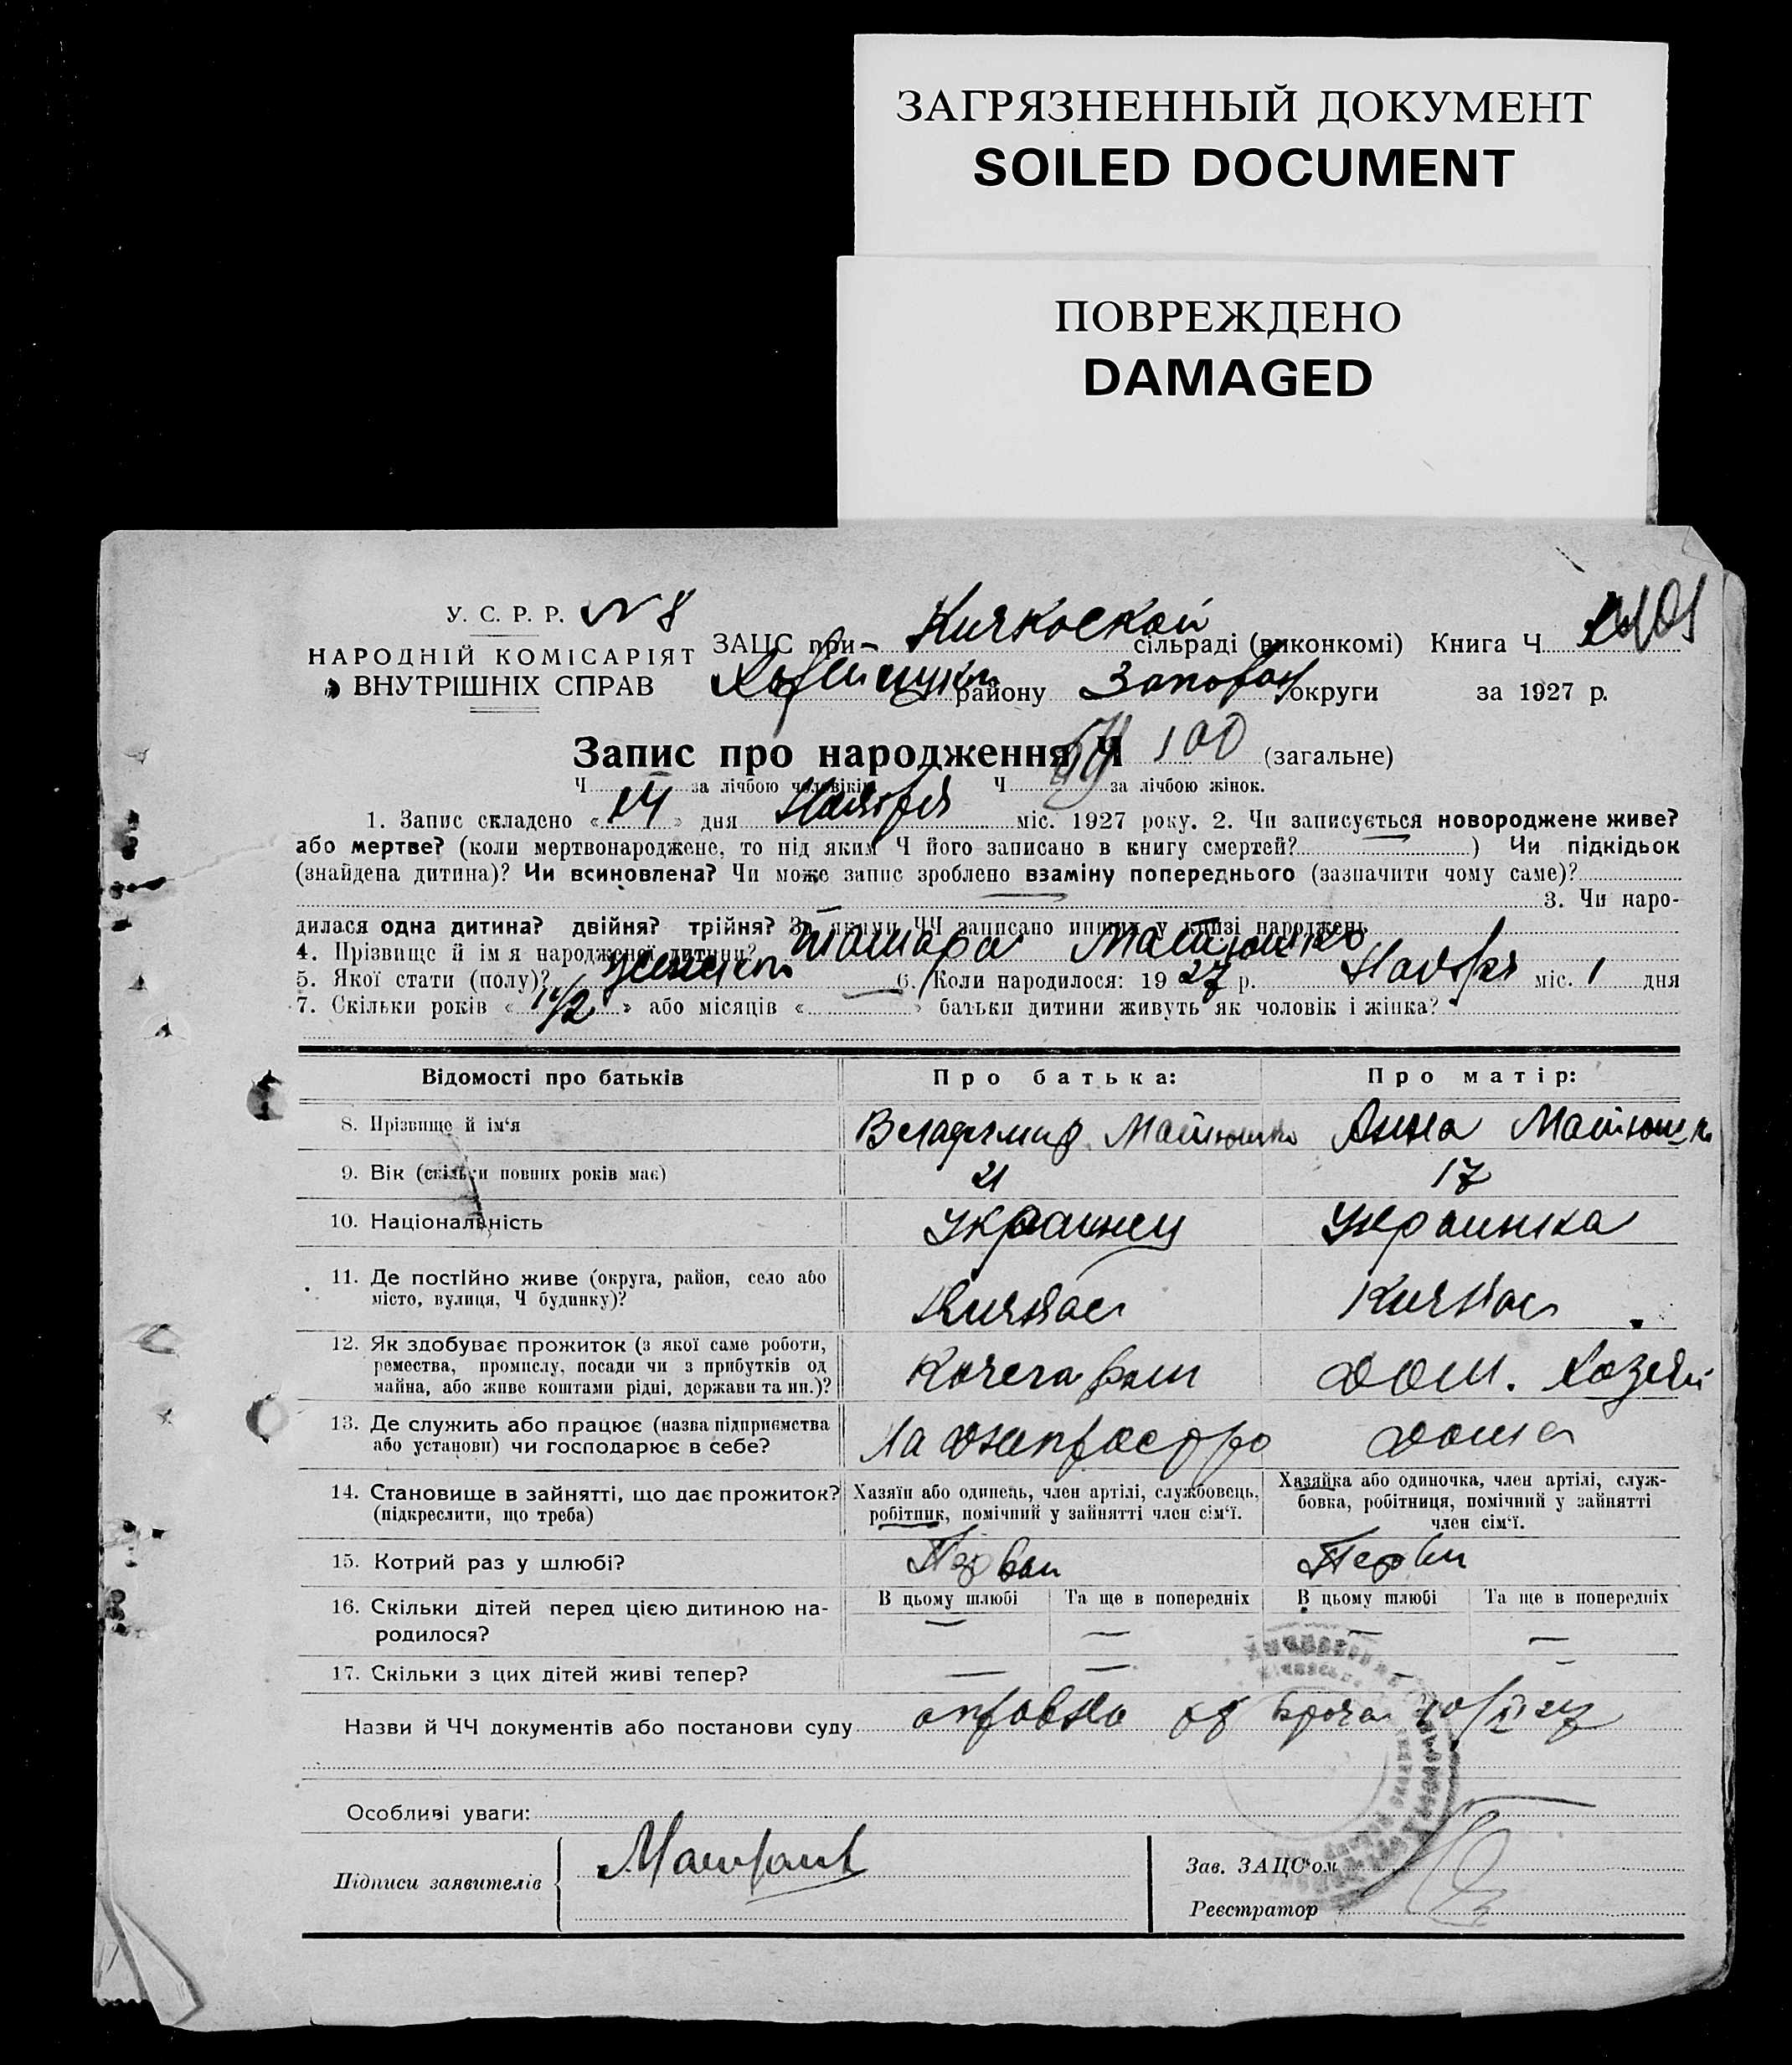 ЗАГРЯЗНЕННЫЙ ДОКУМЕНТ
SOILED DOCUMENT
ПОВРЕЖДЕНО
DAMAGED
У. С. Р. Р. N 8
НАРОДНІЙ КОМІСАРІЯТ
ВНУТРІШНІХ СПРАВ
ЗАЦС при Кичкоской сільраді (виконкомі) Книга Ч
району округи за 1927 р.
Запис про народження Ч 100 (загальне)
Ч за лічбою чоловіків Ч за лічбою жінок.
1. Запис складено « 14 » дня Ноября міс. 1927 року. 2. Чи записується новороджене живе?
або мертве? (коли мертвонароджене, то під яким Ч його записано в книгу смертей? ) Чи підкідьок
(знайдена дитина)? Чи всиновлена? Чи може запис зроблено взаміну попереднього (зазначити чому саме)?
3. Чи наро-
дилася одна дитина? двійня? трійня? За якими ЧЧ записано инших у книзі народжень
4. Прізвище й ім'я народженої дитини? Тамара Матюшко
5. Якої стати (полу)? 6. Коли народилося: 19 27 р. Ноября міс. 1 дня
7. Скільки років « 1 1/2 » або місяців « » батьки дитини живуть як чоловік і жінка?
Відомості про батьків Про батька: Про матір:
8. Прізвище й ім'я Владемир Матюшко Анна Матюшко
9. Вік (скільки повних років має) 21 17
10. Національність Украинец Украинка
11. Де постійно живе (округа, район, село або
місто, вулиця, Ч будинку)? Кичкас Кичкас
12. Як здобуває прожиток (з якої саме роботи,
ремества, промислу, посади чи з прибутків од
майна, або живе коштами рідні, держави та ин.)? Кочегаром Дом. Хозяй
13. Де служить або працює (назва підприємства
або установи) чи господарює в себе? На Днепрострo дома
14. Становище в зайнятті, що дає прожиток?
(підкреслити, що треба)
Хазяїн або одинець, член артілі, службовець,
робітник, помічний у зайнятті член сім'ї.
Хазяйка або одиночка, член артілі, служ-
бовка, робітниця, помічний у зайнятті
член сім'ї.
15. Котрий раз у шлюбі? Первый Первы
16. Скільки дітей перед цією дитиною на-
родилося?
В цьому шлюбі Та ще в попередніх В цьому шлюбі Та ще в попередніх
17. Скільки з цих дітей живі тепер?
Назви й ЧЧ документів або постанови суду справка от врача
Особливі уваги:
Підписи заявителів
Зав. ЗАЦС'ом
Реєстратор